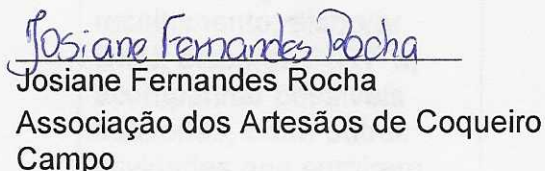 Josiane Fernandes Rocha
Josiane Fernandes Rocha
Associação dos Artesãos de Coqueiro
Campo